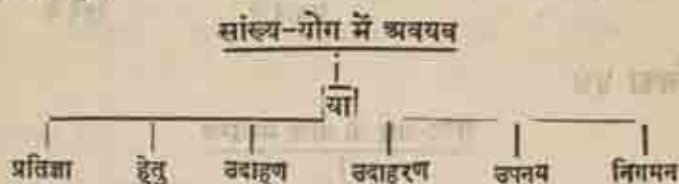 सांख्य-योग में अवयव
या
प्रतिज्ञा हेतु उदाहण उदाहरण उपनय निगमन